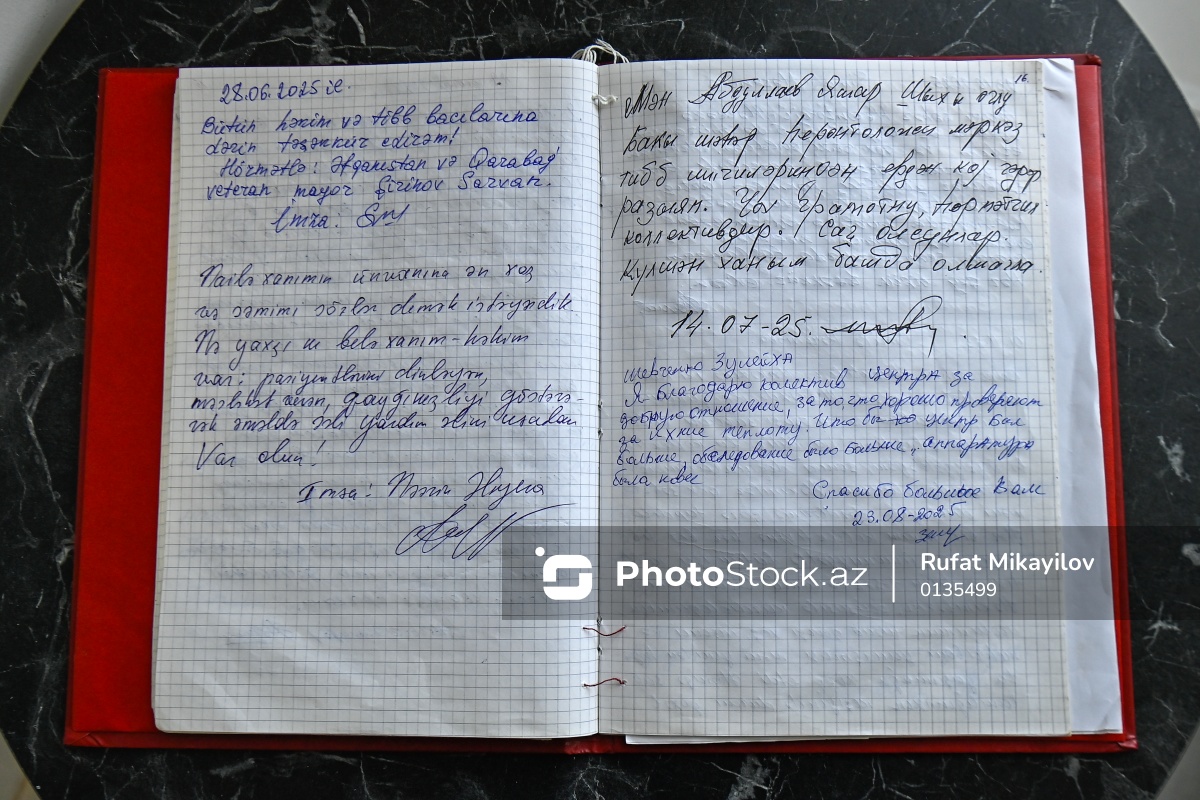 28.06.2025 il.
Bütün həkim və tibb bacılarına
dərin təşəkkür edirəm!
Hörmətlə: Əfqanıstan və Qarabağ
veteran mayor Şirinov Sərvan.
İmza:
Nailə xanımın ünvanına ən xoş
və səmimi sözlər demək istəyirdik.
Nə yaxşı ki belə xanım-həkim
var: pasiyentlərini dinləyən,
məsləhət verən, qayğıkeşliyi göstərə-
rək əməldə əsl yardım əlini uzadan
Var olun!
İmza:
16
Мән Абдуллаев Яшар Шых оглу
Бакы шәһәр Һеронтоложи мәркәз
тибб ишчиләриндән
разыјам. Чох грамотну,
коллективдир. Сағ олсунлар.
Күлшән ханым башда олмагла.
14.07-25.
Шевченко Зулейха
Я благодарю колектив центра за
доброую отношение, за то, что хорошо проверяют
за ихние теплоту. Што бы центр был
больше, обследование было больше, аппаратура
была новее
Спасибо большое Вам
23.08-2025
PhotoStock.az
Rufat Mikayilov
0135499